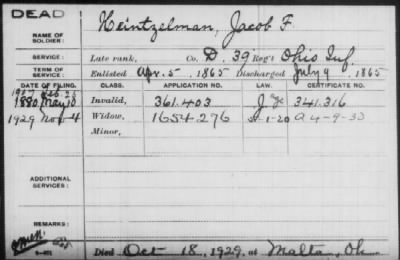 DEAD
NAME OF SOLDIER: Heintzelman, Jacob F
SERVICE: Late rank, Co. D. 39 Reg't Ohio Inf.
TERM OF SERVICE: Enlisted Apr. 5, 1865 Discharged July 9, 1865
DATE OF FILING. CLASS. APPLICATION NO. LAW. CERTIFICATE NO.
1880 May 10 Invalid, 361.403 341.316
1929 Nov-4 Widow, 1654.276 A 4-9-30
Minor,
ADDITIONAL SERVICES:
REMARKS:
Died Oct 18, 1929, at Malta, Oh